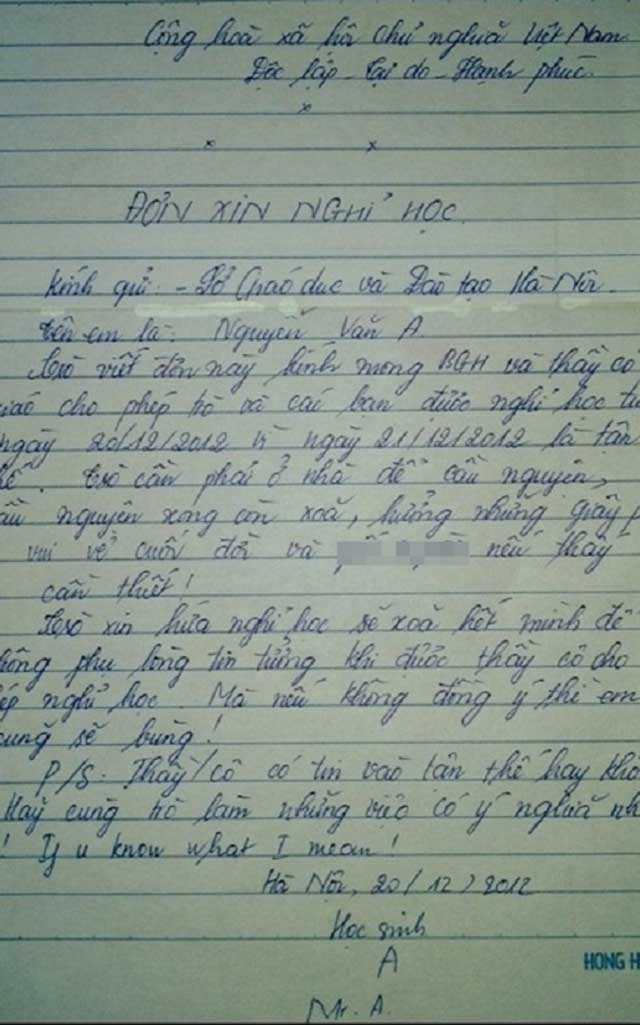 Cộng hoà xã hội chủ nghĩa Việt Nam
Độc lập - Tự do - Hạnh phúc.
ĐƠN XIN NGHỈ HỌC.
Kính gửi: - Sở Giáo dục và Đào tạo Hà Nội.
Tên em là: Nguyễn Văn A.
Trò viết đơn này kính mong BGH và thầy cô
giáo cho phép trò và các bạn được nghỉ học từ
ngày 20/12/2012 vì ngày 21/12/2012 là tận
thế. Trò cần phải ở nhà để cầu nguyện,
cầu nguyện xong còn xoã, hưởng những giây
vui vẻ cuối đời và nếu thấy
cần thiết!
Trò xin hứa nghỉ học sẽ xoã hết mình để
không phụ lòng tin tưởng khi được thầy cô cho
phép nghỉ học. Mà nếu không đồng ý thì em
cũng sẽ bùng!
P/S. Thầy/cô có tin vào tận thế hay
Hãy cùng trò làm những việc có ý nghĩa
! If u know what I mean!
Hà Nội, 20/12/2012
Học sinh
A
Mr. A.
HONG H